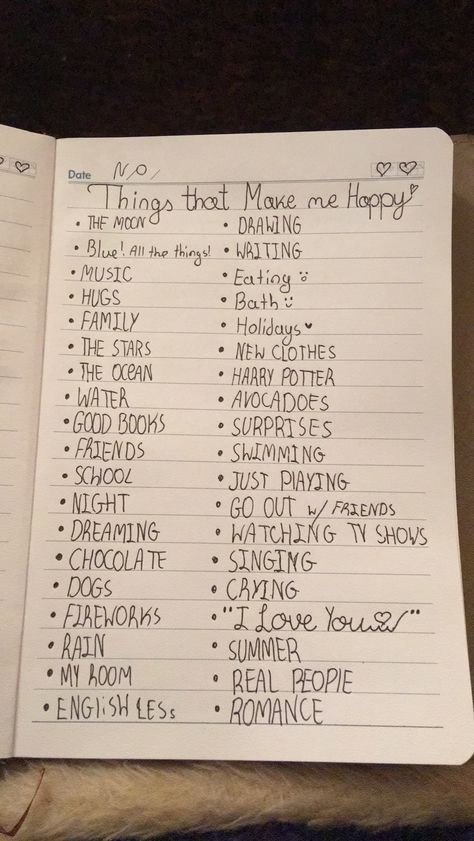 Date N/O/
Things that Make me Happy
• THE MOON
• Blue! All the things!
• MUSIC
• HUGS
• FAMILY
• THE STARS
• THE OCEAN
• WATER
• GOOD BOOKS
• FRIENDS
• SCHOOL
• NIGHT
• DREAMING
• CHOCOLATE
• DOGS
• FIREWORKS
• RAIN
• MY ROOM
• ENGLISH LESs
• DRAWING
• WRITING
• Eating
• Bath
• Holidays
• NEW CLOTHES
• HARRY POTTER
• AVOCADOES
• SURPRISES
• SWIMMING
• JUST PLAYING
• GO OUT w/ FRIENDS
• WATCHING TV SHOWS
• SINGING
• CRYING
• "I Love You"
• SUMMER
• REAL PEOPLE
• ROMANCE